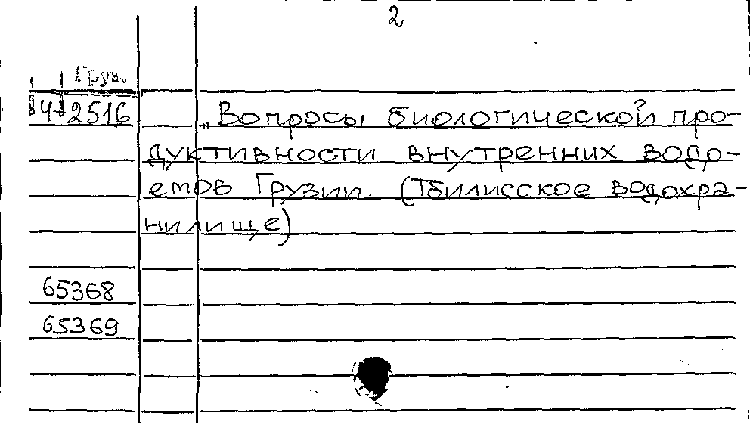 2
Груз.
4-2516
„Вопросы биологической про-
дуктивности внутренних водо-
емов Грузии. (Тбилисское водохра-
нилище)
65368
65369